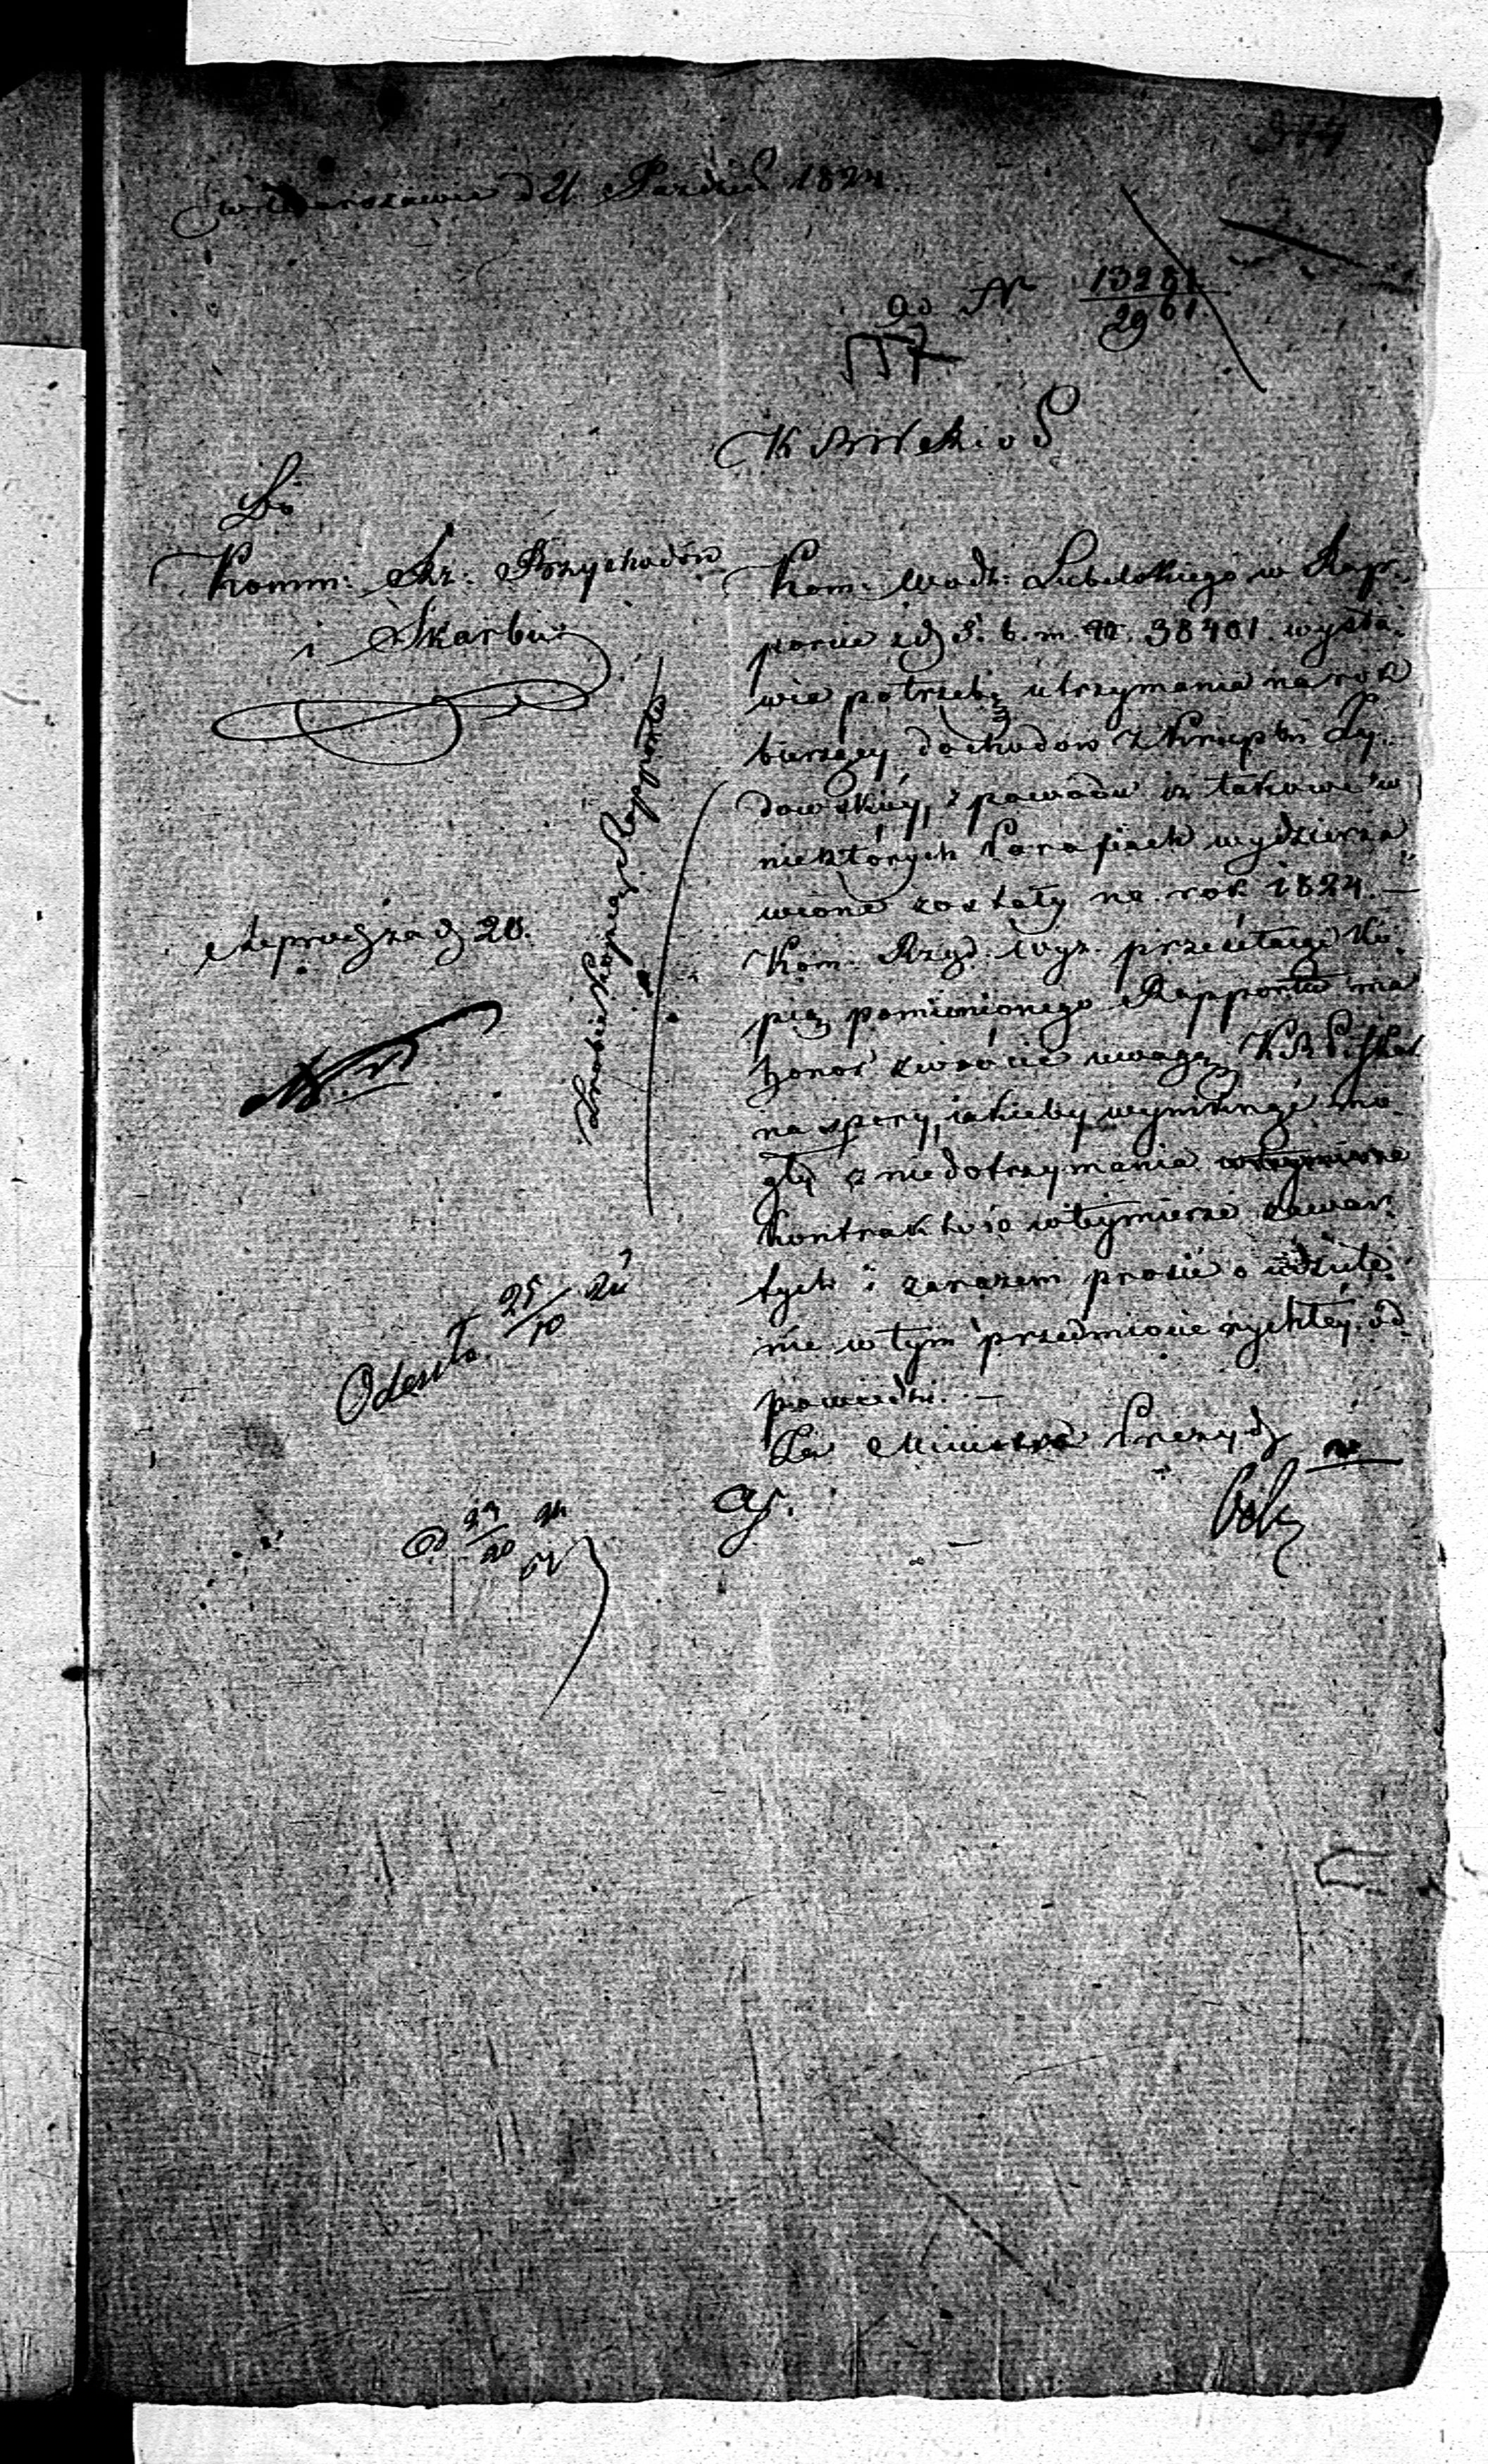 w Warszawie d 21. Paździer 1824.
ad Nr 13281/2961
K R W R i O P
Do
Komm: Rz: Przychodów
i Skarbu
Kom: Wodz: Lubelskiego w Rap-
porcie z d 8. b. m. Nr. 38401. wysta-
wia potrzebę utrzymania na rok
bieżący dochodów z Krupki Ży-
dowskiéy, z powodu iż takowe w
niektórych Parafiach wydzierża-
wione zostały na rok 1824. —
Kom: Rząd: Wyz. przesełaiąc Ko-
pią pomienionego Rapportu ma
honor zwrócić uwagę K R P i Skar
na spory, iakieby wyniknąć mo-
gły z niedotrzymania
kontraktów w téymierze zawar-
tych i zarazem prosić o udziele-
nie w tym przedmiocie rychłéy od-
powiedzi. —
Za Ministra Prezyd
Zrobić Kopią Rapportu
Odeszło 25/10 24